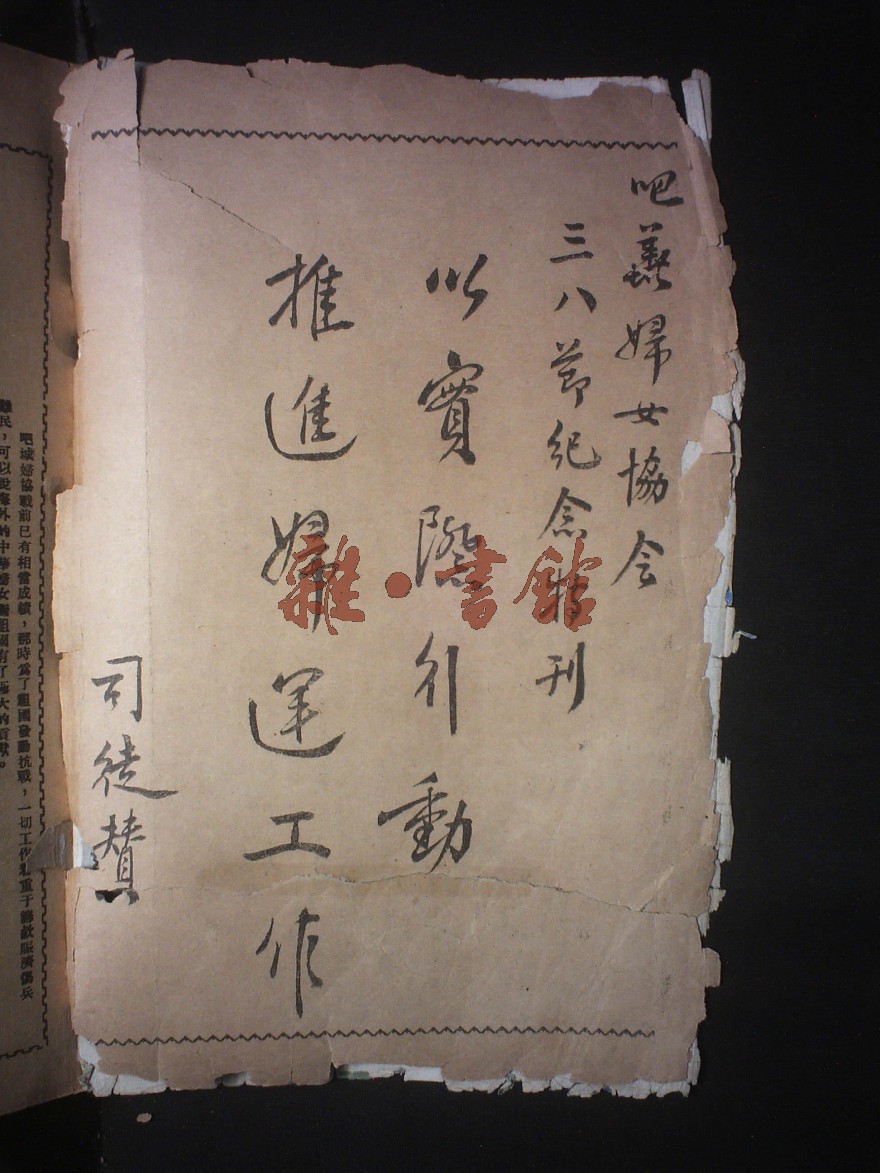 吧華婦女協会
三八節紀念特刊
以實際行動
推進婦運工作
司徒贊
雜·書館
吧城婦協戰前已有相當成績,那時為了祖國發動抗戰,一切工作注重于籌款賑濟傷兵
難民,可以說海外的中華婦女對祖國有了極大的貢獻。